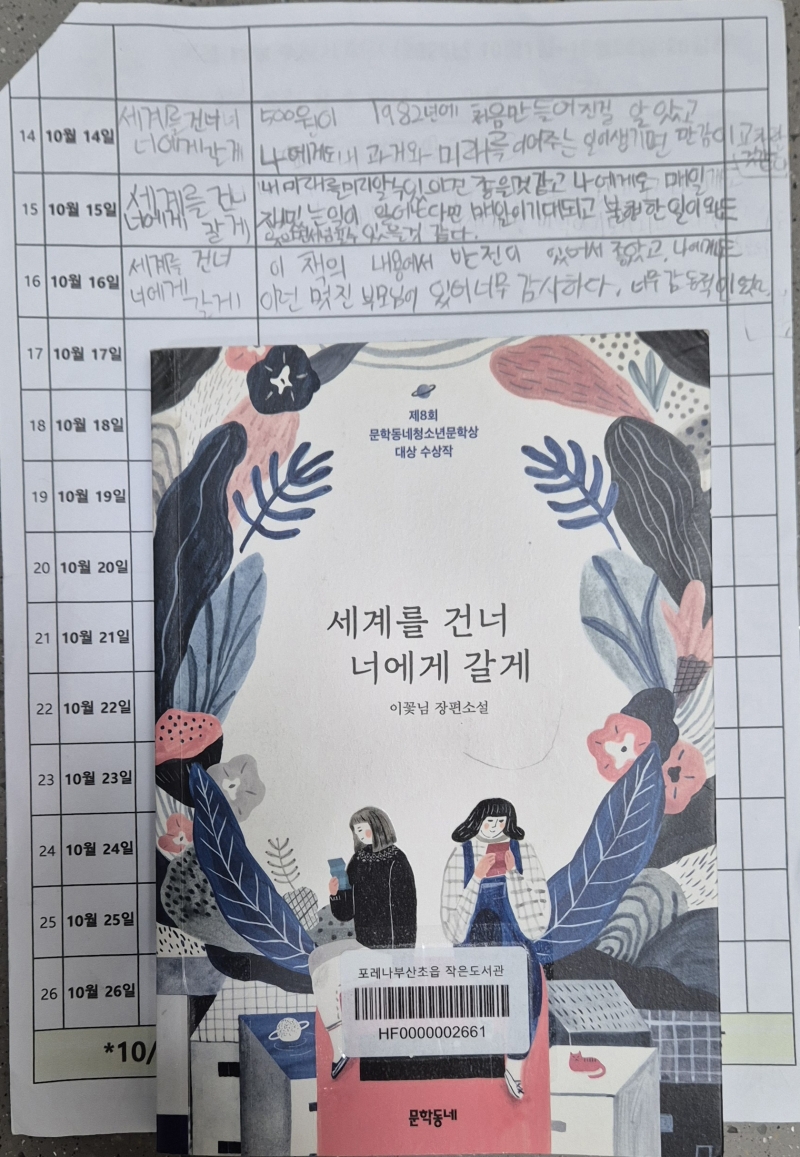 14 10월 14일 세계를 건너 너에게 갈게
500원이 1982년에 처음 만들어진걸 알았고
나에게도 내 과거와 미래를 이어주는 일이생기면 만감이
15 10월 15일 세계를 건너 너에게 갈게
내 미래를 미리알수있으면 좋을것같고 나에게도 매일
일이 있다면 매일이기대되고 일이와도
있을것 같다.
16 10월 16일 세계를 건너 너에게 갈게
이 책의 내용에서 반전이 있어서 좋았고, 나에게도
이런 멋진 부모님이 있어 너무 감사하다. 너무 감동적이었다.
17 10월 17일
18 10월 18일
19 10월 19일
20 10월 20일
21 10월 21일
22 10월 22일
23 10월 23일
24 10월 24일
25 10월 25일
26 10월 26일
*10/
제8회
문학동네청소년문학상
대상 수상작
세계를 건너
너에게 갈게
이꽃님 장편소설
포레나부산초읍 작은도서관
HF0000002661
문학동네